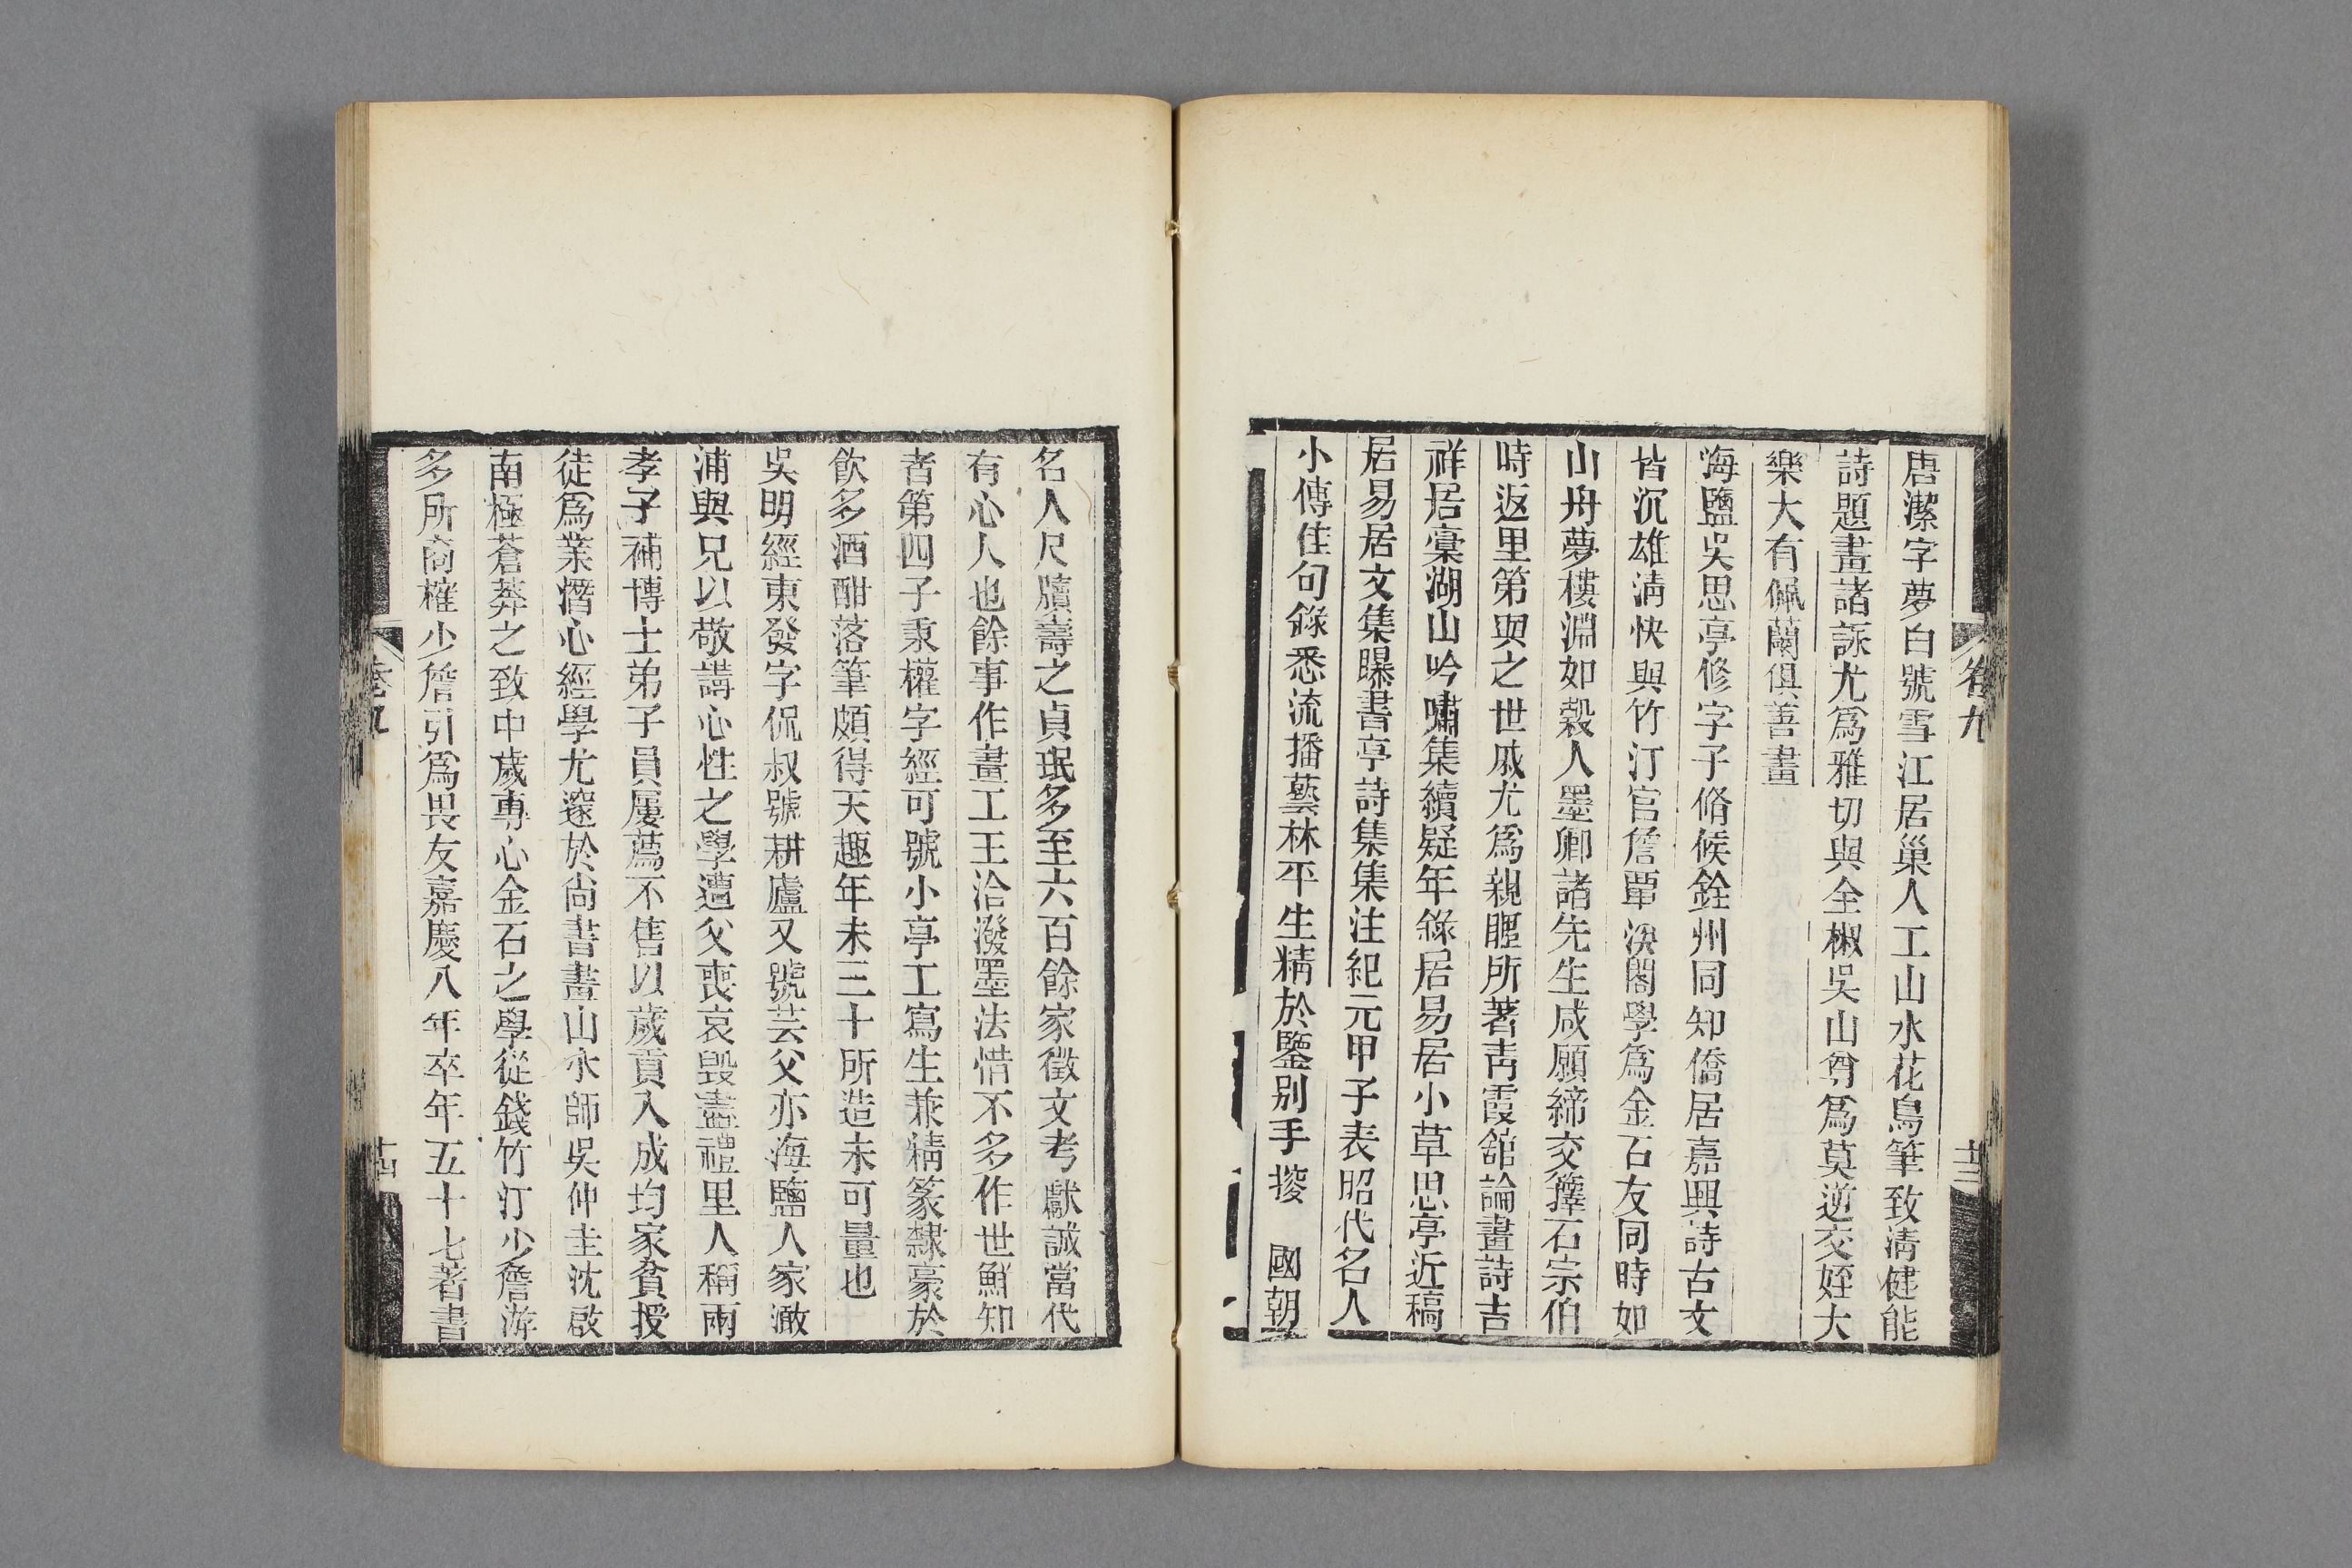 卷九
十三
唐潔字夢白號雪江居巢人工山水花鳥筆致清健能
詩題畫諸詠尤爲雅切與全椒吳山尊爲莫逆交姪大
樂大有佩蘭俱善畫
海鹽吳思亭修字子脩候銓州同知僑居嘉興詩古文
皆沉雄淸快與竹汀官詹覃溪閣學爲金石友同時如
山舟夢樓淵如穀人墨卿諸先生咸願締交籜石宗伯
時返里第與之世戚尤爲親暱所著靑霞舘論畫詩吉
祥居稾湖山吟嘯集續疑年錄居易居小草思亭近稿
居易居文集曝書亭詩集集注紀元甲子表昭代名人
小傳佳句錄悉流播藝林平生精於鑒别手揆 國朝
名人尺牘壽之貞珉多至六百餘家徵文考獻誠當代
有心人也餘事作畫工王洽潑墨法惜不多作世鮮知
者第四子秉權字經可號小亭工寫生兼精篆隸豪於
飲多酒酣落筆頗得天趣年未三十所造未可量也
吳明經東發字侃叔號耕廬又號芸父亦海鹽人家澉
浦與兄以敬講心性之學遭父喪哀毁盡禮里人稱兩
孝子補博士弟子員屢薦不售以歲貢入成均家貧授
徒爲業潛心經學尤邃於尚書畫山水師吳仲圭沈啟
南極蒼莽之致中歲專心金石之學從錢竹汀少詹游
多所商榷少詹引爲畏友嘉慶八年卒年五十七著書
卷九
十四